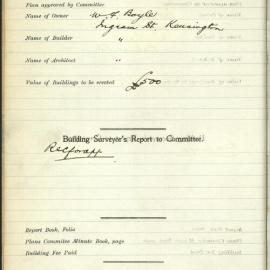 Plan approved by Committee
Name of Owner W. J. Boyle
Ingram St. Kensington
Name of Builder "
Name of Architect "
Value of Buildings to be erected £500
Building Surveyor's Report to Committee.
Rec for app
Report Book, Folio
Plans Committee Minute Book, page
Building Fee Paid